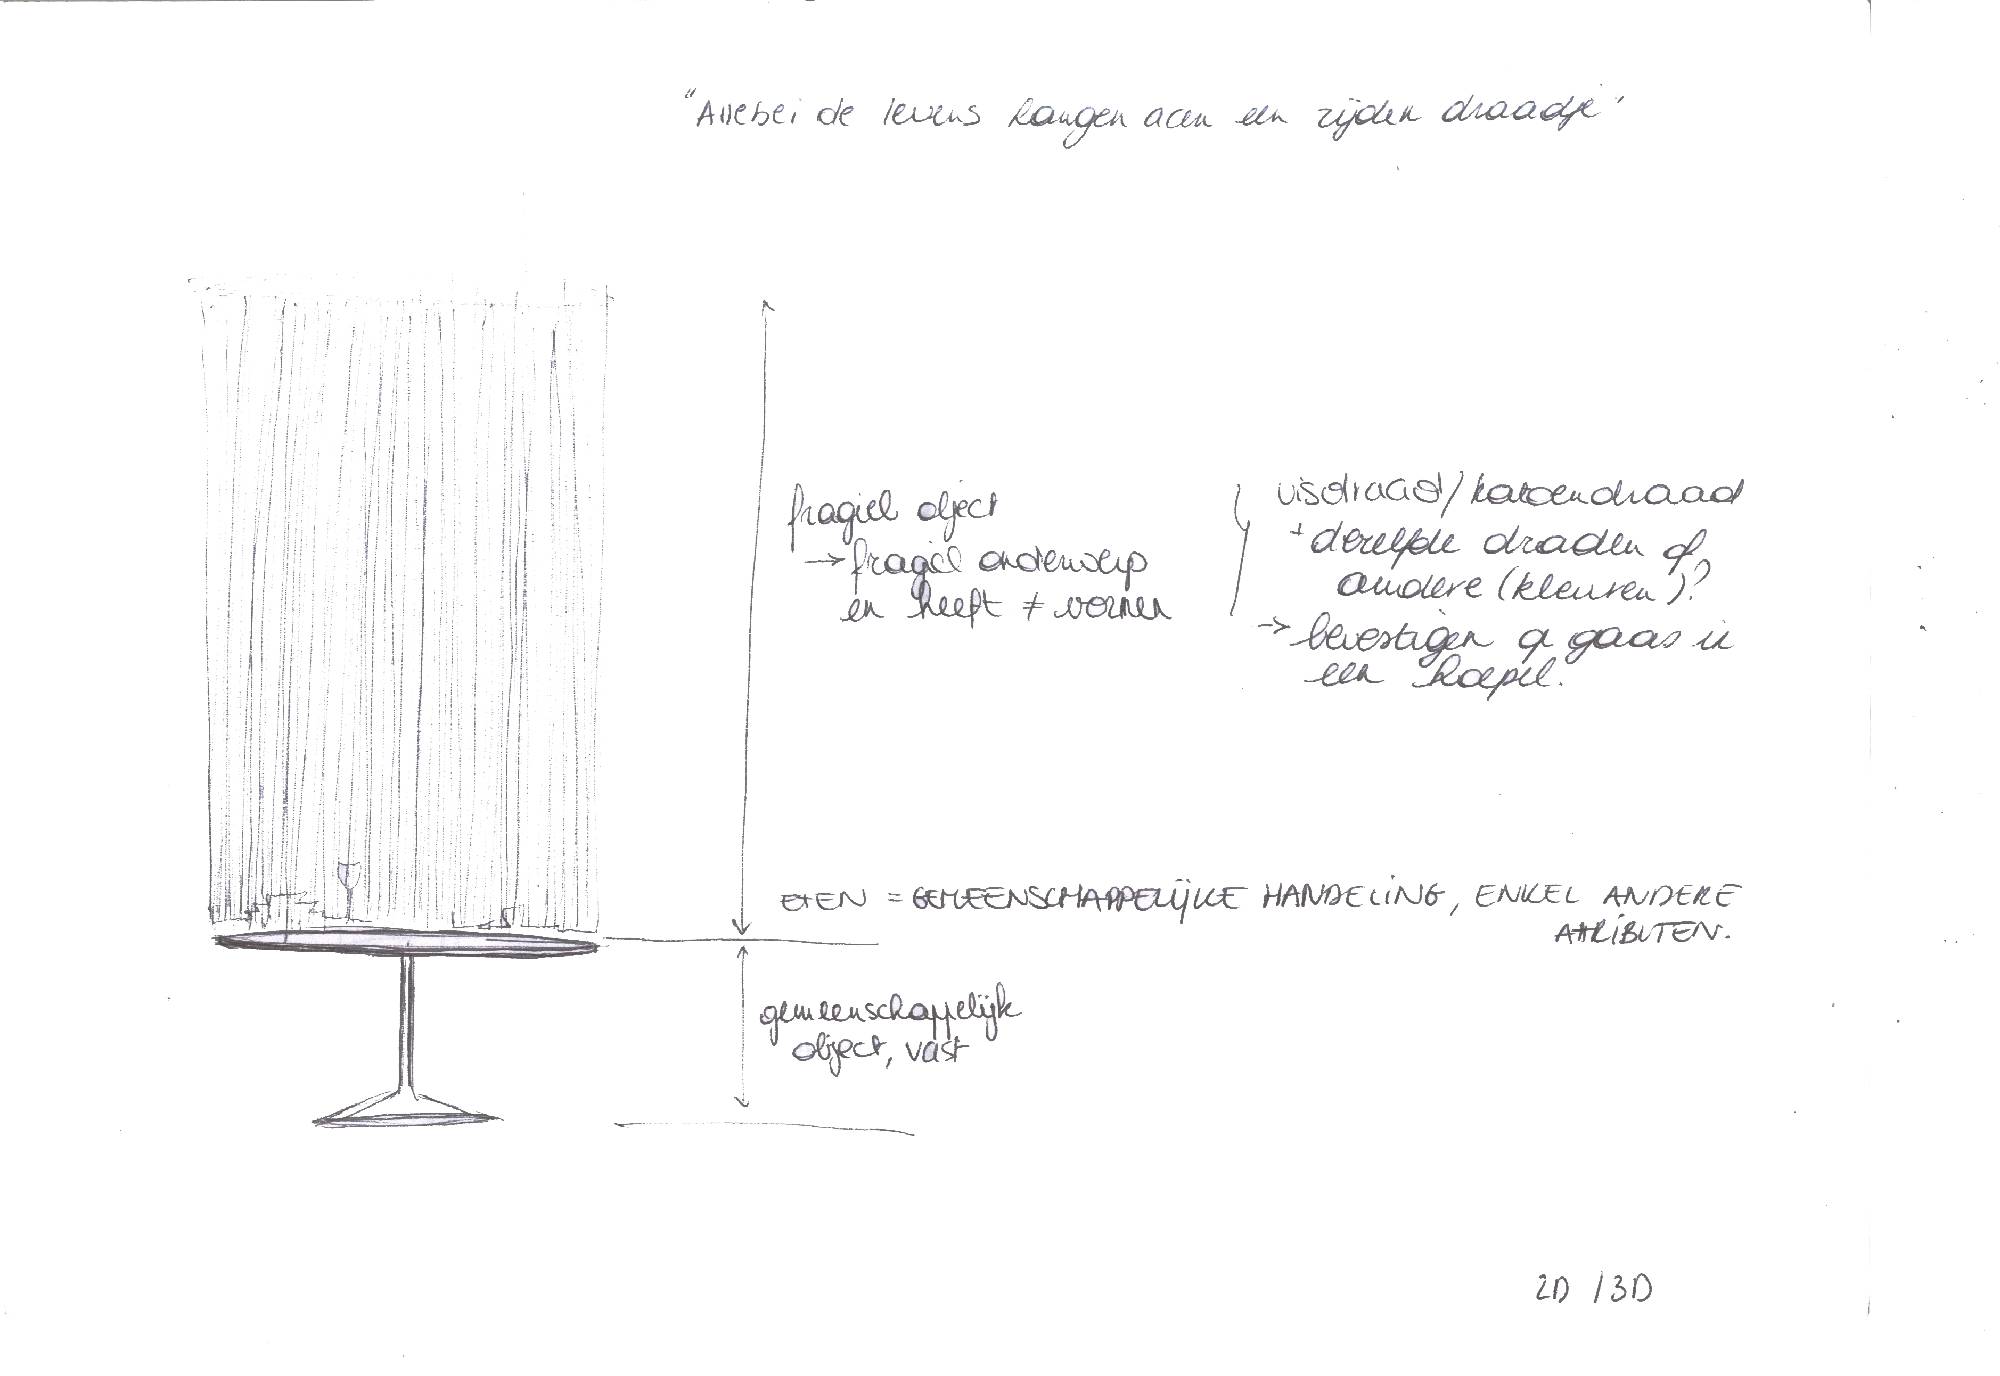 "Allebei de levens hangen aan een zijden draadje"
fragiel object
→ fragiel onderwerp
en heeft ≠ vormen
visdraad/katoendraad
+ dezelfde draden of
andere (kleuren)?
→ bevestigen op gaas in
een koepel.
ETEN = GEMEENSCHAPPELIJKE HANDELING, ENKEL ANDERE
ATTRIBUTEN.
gemeenschappelijk
object, vast
2D / 3D